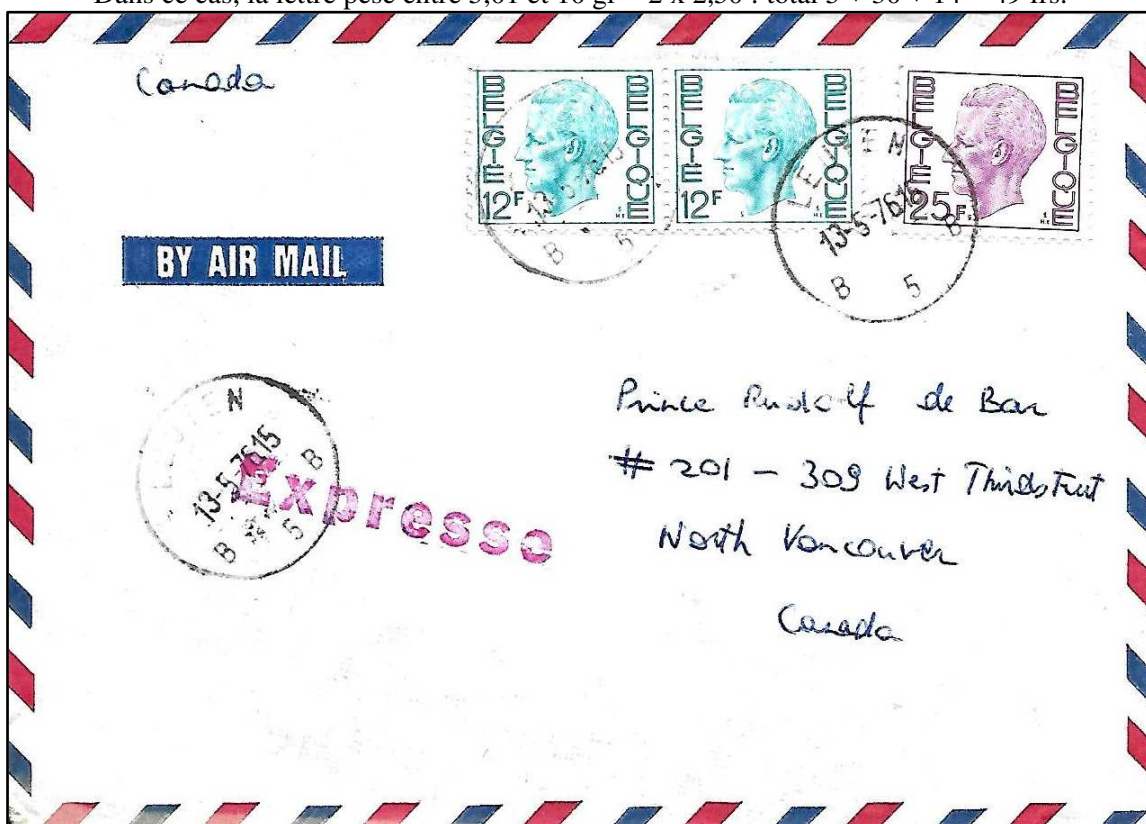 Dans ce cas, la lettre pèse entre 5,01 et 10 gr = 2 x 2,50 : total 5 + 30 + 14 = 49 frs.
Canada
BELGIE BELGIQUE 12F
BELGIE BELGIQUE 12F
BELGIE BELGIQUE 25F
13-5-76 15
B 5
LEUVEN
13-5-76 15
B 5 B
BY AIR MAIL
LEUVEN
13-5-76 15
B 5 B
Expresso
Prince Rudolf de Bar
# 201 - 309 West Third Street
North Vancouver
Canada